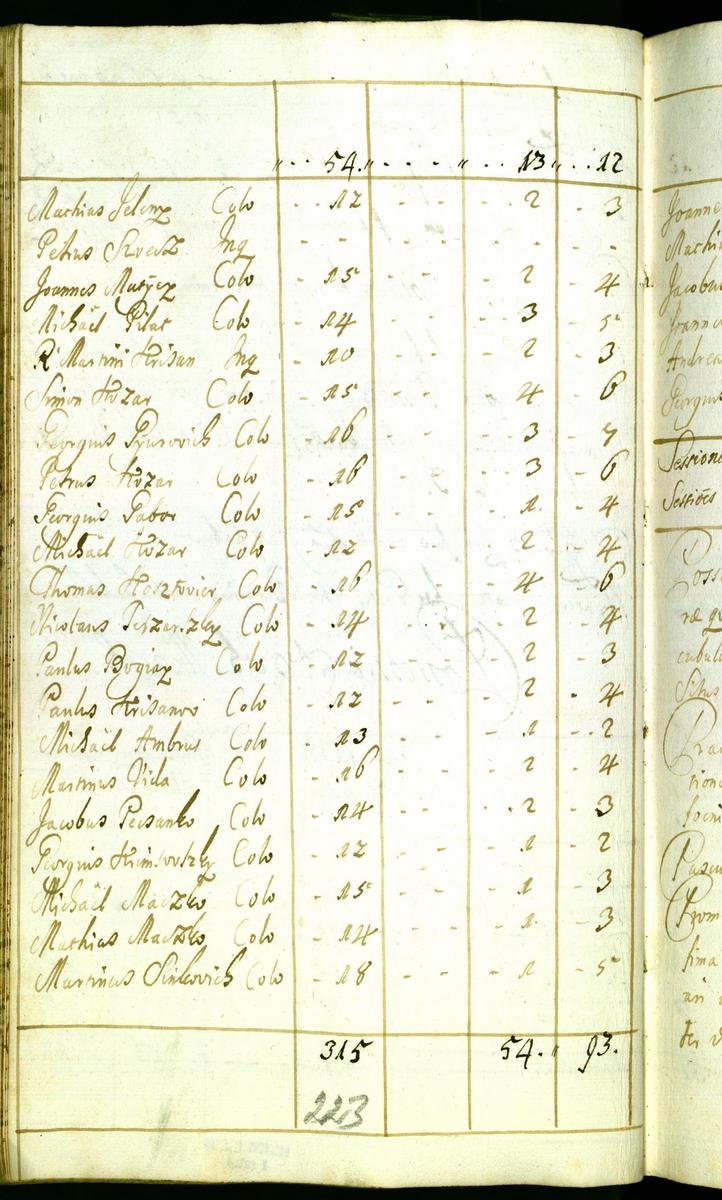 " - - 54. " - - - " - - 13 " - - 12
Mathias Jelenz Colo - 12 - - - 2 - 3
Petrus Svecz Inq - - - - - - -
Joannes Matycz Colo - 15 - - - 2 - 4
Michaël Pilat Colo - 14 - - - 3 - 5
R Martini Krisan Inq - 10 - - - 2 - 3
Simon Kozar Colo - 15 - - - 4 - 6
Georgius Prusovich Colo - 16 - - - 3 - 7
Petrus Kozar Colo - 16 - - - 3 - 6
Georgius Gabor Colo - 15 - - - 1 - 4
Michaël Kozar Colo - 12 - - - 2 - 4
Thomas Colo - 16 - - - 4 - 6
Nicolaus Colo - 14 - - - 2 - 4
Paulus Colo - 12 - - - 2 - 3
Paulus Krisanos Colo - 12 - - - 2 - 4
Michaël Ambrus Colo - 13 - - - 1 - 2
Martinus Vida Colo - 16 - - - 2 - 4
Jacobus Pecsanko Colo - 14 - - - 2 - 3
Georgius Colo - 12 - - - 1 - 2
Michaël Maczko Colo - 15 - - - 1 - 3
Mathias Maczko Colo - 14 - - - 1 - 3
Martinus Sinkovich Colo - 18 - - - 1 - 5
315 54. " 93.
223
Joanne
Mathi
Jacobu
Joanne
Andrea
Georgius
Sessione
Sessiōes
Poss
ræ qu
cubul
Situs
Pra
tion
Pascu
From
sima